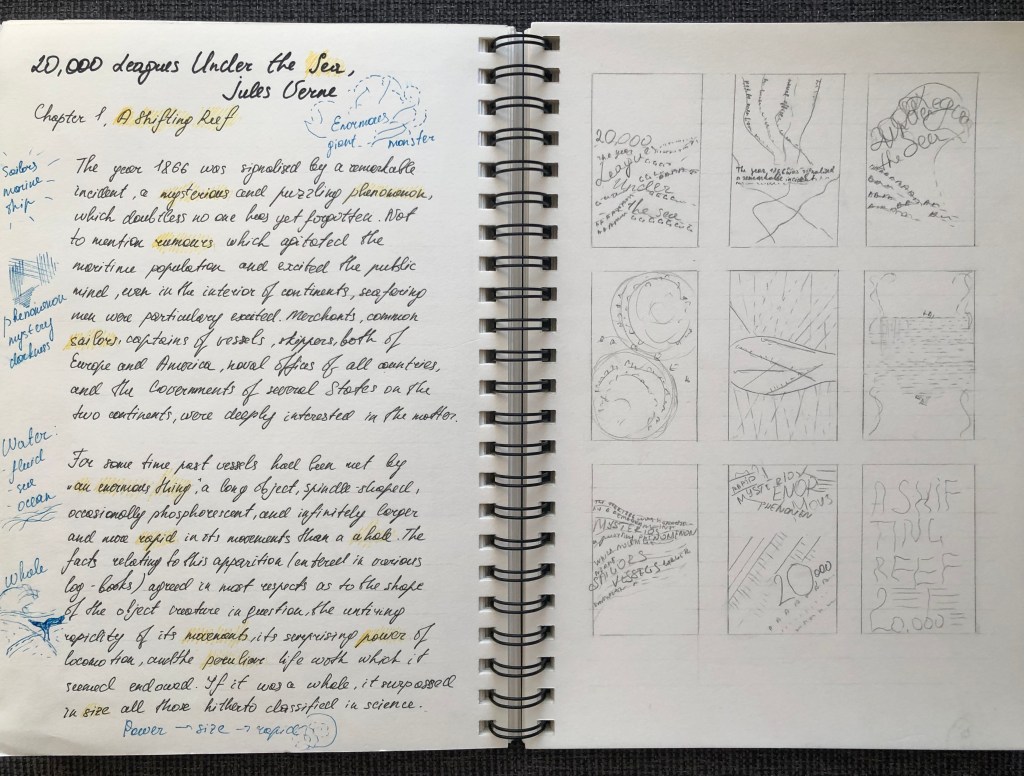 20,000 Leagues Under the Sea,
Jules Verne
Chapter 1. A Shifting Reef
Enormous
giant
monster
Sailors
marine
ship
The year 1866 was signalised by a remarkable
incident, a mysterious and puzzling phenomenon,
which doubtless no one has yet forgotten. Not
to mention rumours which agitated the
maritime population and excited the public
mind, even in the interior of continents, seafaring
men were particulary excited. Merchants, common
sailors, captains of vessels, skippers, both of
Europe and America, naval offices of all countries,
and the Governments of several States on the
two continents, were deeply interested in the matter.
phenomenon
mystery
darkness
For some time past vessels had been met by
"an enormous thing", a long object, spindle-shaped,
occasionally phosphorescent, and infinitely larger
and more rapid in its movements than a whale. The
facts relating to this apparition (entered in various
log-books) agreed in most respects as to the shape
of the object creature in question, the untiring
rapidity of its movements, its surprising power of
locomotion, and the peculiar life with which it
seemed endowed. If it was a whale, it surpassed
in size all those hitherto classified in science.
Water:
- fluid
- sea
- ocean
whale
Power → size → rapid
20,000
The year
Leagues
Under
the sea
The year, 1866 was signalised
a remarkable incident
the Sea
MYSTERIOUS
PHENOMENON
VESSELS
ENOR
MOUS
PHENOMEN
20000
A SHIF
TING
REEF
20,000